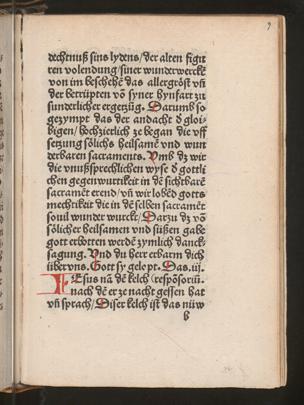 9
dechtnuß sins lydens/der alten figu
ren volendung/siner wunderwerckē
von im beschehē das allergröst vñ
der betrüpten vō syner hynfart zů
sunderlicher ergezūg. Darumb so
gezympt das der andacht ď glöi⸗
bigen/hochzietlich ze began die vff
setzung sölichs heilsamē vnd wun
derbaren sacraments. Vmb dz wir
die vnußsprechlichen wyse ď göttli
chen gegenwurtikeit in dē sichtbarē
sacramēt erend/vñ wir lobēd gotts
mechtikeit die in dē selben sacramēt
souil wunder wurckt/Darzů dz vō
sölicher heilsamen vnd süßen gabe
gott erbotten werdē zymlich danck⸗
sagung. Vnd du herr erbarm dich
über vns. Gott sy gelopt. Das .iij.
Iesus nā dē kelch (respōsoriū⸗
nach dē er ze nacht gessen hat
vñ sprach/Diser kelch ist das nüw
b